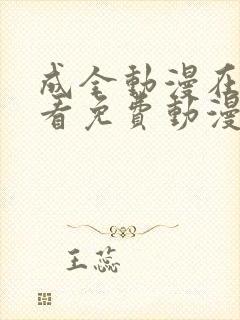 成全動漫在
看免費動漫
王蕊